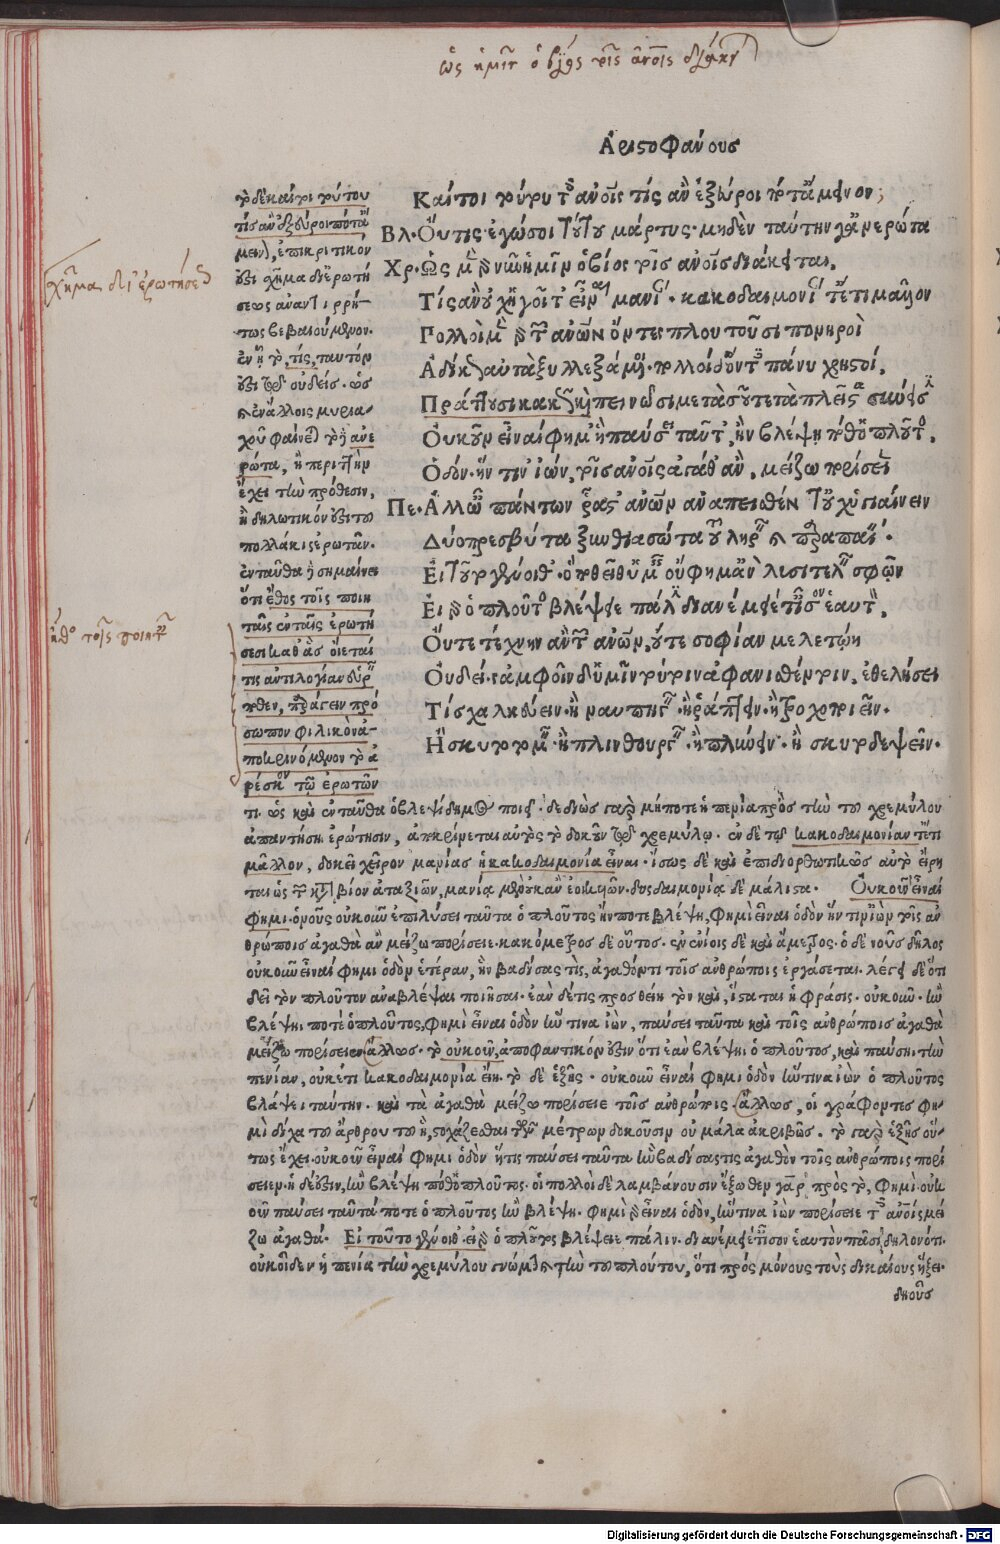 ὡς ἡμῖν ὁ βίος τοῖς ἀνοῖς διάκει
Ἀριστοφάνους
Καίτοι τούτου τοῖς ἀνοῖς τίς ἂν ἐξεύροι ποτ' ἄμεινον;
Βλ. Οὔτις. ἐγώ σοι τούτου μάρτυς. μηδὲν ταύτην γ' ἀνερώτα
Χρ. Ὡς μὲν γὰρ νῦν ἡμῖν ὁ βίος τοῖς ἀνοῖς διάκειται,
Τίς ἂν οὐχ ἡγοῖτ' εἶναι μανίαν. κακοδαιμονίαν τ' ἔτι μᾶλλον
Πολλοὶ μὲν γὰρ τῶν ἀνῶν ὄντες πλουτοῦσι πονηροὶ
Ἀδίκως αὐτὰ ξυλλεξάμενοι. πολλοὶ δ' ὄντες πάνυ χρηστοί,
Πράττουσι κακῶς καὶ πεινῶσι μετὰ σοῦ τε τὰ πλεῖστα
Οὐκοῦν εἶναί φημ' ἢ παύσει ταῦτ', ἢν βλέψῃ ποθ' ὁ πλοῦτος,
Ὁδὸν ἥν τιν' ἰών, τοῖς ἀνοῖς ἀγάθ' ἂν, μείζω πορίσειεν
Πε. Ἀλλ' ὦ πάντων ῥᾷστ' ἀνῶν ἀναπεισθέντ' οὐχ ὑγιαίνειν
Δύο πρεσβύτα ξυνθιασώτα τοῦ ληρεῖν καὶ παραπαίειν.
Εἰ τοῦτο γένοιθ' ὃ ποθεῖθ' ὑμεῖς οὔ φημ' ἂν λυσιτελεῖν σφῷν
Εἰ γὰρ ὁ πλοῦτος βλέψειε πάλιν διανέμειέ τ' ἴσον ἑαυτόν,
Οὔτε τέχνην ἂν τῶν ἀνῶν, οὔτε σοφίαν μελετῴη
Οὐδείς. ἀμφοῖν δ' ὑμῖν τούτοιν ἀφανισθέντοιν, ἐθελήσει
Τίς χαλκεύειν. ἢ ναυπηγεῖν. ἢ ῥάπτειν. ἢ τροχοποιεῖν.
Ἢ σκυτοτομεῖν. ἢ πλινθουργεῖν. ἢ πλύνειν. ἢ σκυλοδεψεῖν.
τὸ δὲ καίτοι τούτου
τίς ἂν ἐξεύροι ποτ' ἄ
μεινον, ἐπικριτικὸν
ἐστι σχῆμα δι' ἐρωτή
σεως ἀναντιρρή-
τως βεβαιούμενον.
ἐν ᾧ τὸ, τίς, ταυτόν
ἐστι τῷ οὐδείς. ὡς
καὶ ἐν ἄλλοις μυρια-
χοῦ φαίνεται τὸ δὲ ἀνε
ρώτα, ἢ περιττὴν
ἔχει τὴν πρόθεσιν,
ἢ δηλωτικόν ἐστι τοῦ
πολλάκις ἐρωτᾶν.
ἐνταῦθα δὲ σημαίνει
ὅτι ἔθος τοῖς ποιη
ταῖς ἐν ταῖς ἐρωτή
σεσι καθ' ἃς οἴεταί
τις ἀντιλογίαν
πρό
σωπον φιλικὸν ἀ-
ποκρινόμενον τὸ ἀ
ρέσκον τῷ ἐρωτῶν
σχῆμα δι' ἐρωτήσεως
ἔθος τοῖς ποιηταῖς
τι. ὡς καὶ ἐνταῦθα ὁ βλεψίδημος ποιεῖ. δεδιὼς γὰρ μήποτε ἡ πενία πρὸς τὴν τοῦ χρεμύλου
ἀπαντήσῃ ἐρώτησιν, ἀποκρίνεται αὐτὸς τὸ δοκοῦν τῷ χρεμύλῳ. ἐν δὲ τῷ κακοδαιμονίαν τ' ἔτι
μᾶλλον, δοκεῖ χεῖρον μανίας ἡ κακοδαιμονία εἶναι. ἴσως δὲ καὶ ἐπιδιορθωτικῶς αὐτὸ εἴρη
ται ὡς τῶν κατὰ βίον ἀταξιῶν, μανίᾳ μὲν οὐκ ἂν ἐοικυιῶν. δυσδαιμονίᾳ δὲ μάλιστα. Οὐκοῦν εἶναί
φημι. ὁ νοῦς οὐκοῦν ἐπιλύσει ταῦτα ὁ πλοῦτος ἤν ποτε βλέψῃ, φημὶ εἶναι ὁδὸν ἥν τιν' ἰὼν τοῖς ἀν
θρώποις ἀγαθὰ ἂν μείζω πορίσειε. κακόμετρος δὲ οὗτος. ἐν ἐνίοις δὲ καὶ ἄμετρος. ὁ δὲ νοῦς δῆλος
οὐκοῦν εἶναί φημι ὁδὸν ἑτέραν, ἣν βαδίσας τις, ἀγαθόν τι τοῖς ἀνθρώποις ἐργάσεται. λέγει δὲ ὅτι
δεῖ τὸν πλοῦτον ἀναβλέψαι ποιῆσαι. ἐὰν δέ τις προσθείη τὸν καὶ, ἵσταται ἡ φράσις. οὐκοῦν. ἢν
βλέψῃ ποτὲ ὁ πλοῦτος, φημὶ εἶναι ὁδὸν ἥν τινα ἰὼν, παύσει ταῦτα καὶ τοῖς ἀνθρώποις ἀγαθὰ
μείζω πορίσειεν ἄλλως. τὸ οὐκοῦν, ἀποφαντικόν ἐστιν ὅτι ἐὰν βλέψῃ ὁ πλοῦτος, καὶ παύσῃ τὴν
πενίαν, οὐκέτι κακοδαιμονία ἔνι. τὸ δὲ ἑξῆς. οὐκοῦν εἶναί φημι ὁδὸν ἥντινα ἰὼν ὁ πλοῦτος
βλάψει ταύτην. καὶ τὰ ἀγαθὰ μείζω πορίσειε τοῖς ἀνθρώποις. ἄλλως, οἱ γράφοντες φη-
μὶ δίχα τοῦ ἄρθρου τοῦ ἢ, στοχάζεσθαι τῶν μέτρων δοκοῦσιν οὐ μάλα ἀκριβῶς. τὸ γὰρ ἑξῆς οὕ-
τως ἔχει. οὐκοῦν εἶναί φημι ὁδὸν ἥτις παύσει ταῦτα ἣν βαδίσας τις ἀγαθὸν τοῖς ἀνθρώποις πορί
σειεν. ἡ δέ ἐστιν, ἢν βλέψῃ ποθ' ὁ πλοῦτος. οἱ πολλοὶ δὲ λαμβάνουσιν ἔξωθεν γὰρ πρὸς τὸ, φημὶ. οὐκ
οῦν παύσει ταῦτά ποτε ὁ πλοῦτος ἢν βλέψῃ. φημὶ γὰρ εἶναι ὁδὸν, ἥντινα ἰὼν πορίσειε τοῖς ἀνοῖς μεί
ζω ἀγαθά. Εἰ τοῦτο γένοιθ'. εἰ γὰρ ὁ πλοῦτος βλέψειε πάλιν. διανέμειέ τ' ἴσον ἑαυτὸν πᾶσι δηλονότι.
οὐκ οἶδεν ἡ πενία τὴν χρεμύλου γνώμην καὶ τὴν τοῦ πλούτου, ὅτι πρὸς μόνους τοὺς δικαίους ἥξει.
δηοῦσ
Digitalisierung gefördert durch die Deutsche Forschungsgemeinschaft - DFG